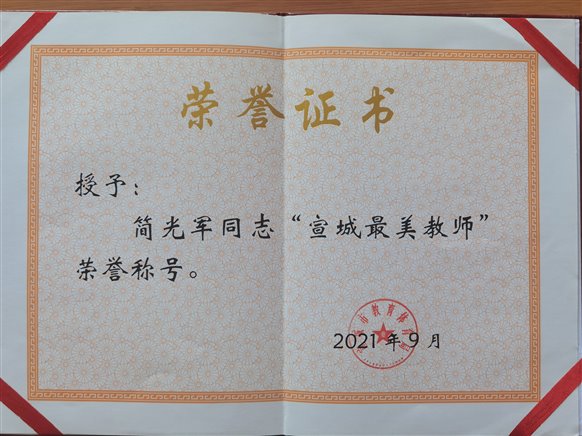 荣誉证书
授予：
简光军同志“宣城最美教师”
荣誉称号。
市教育体育局
2021年9月